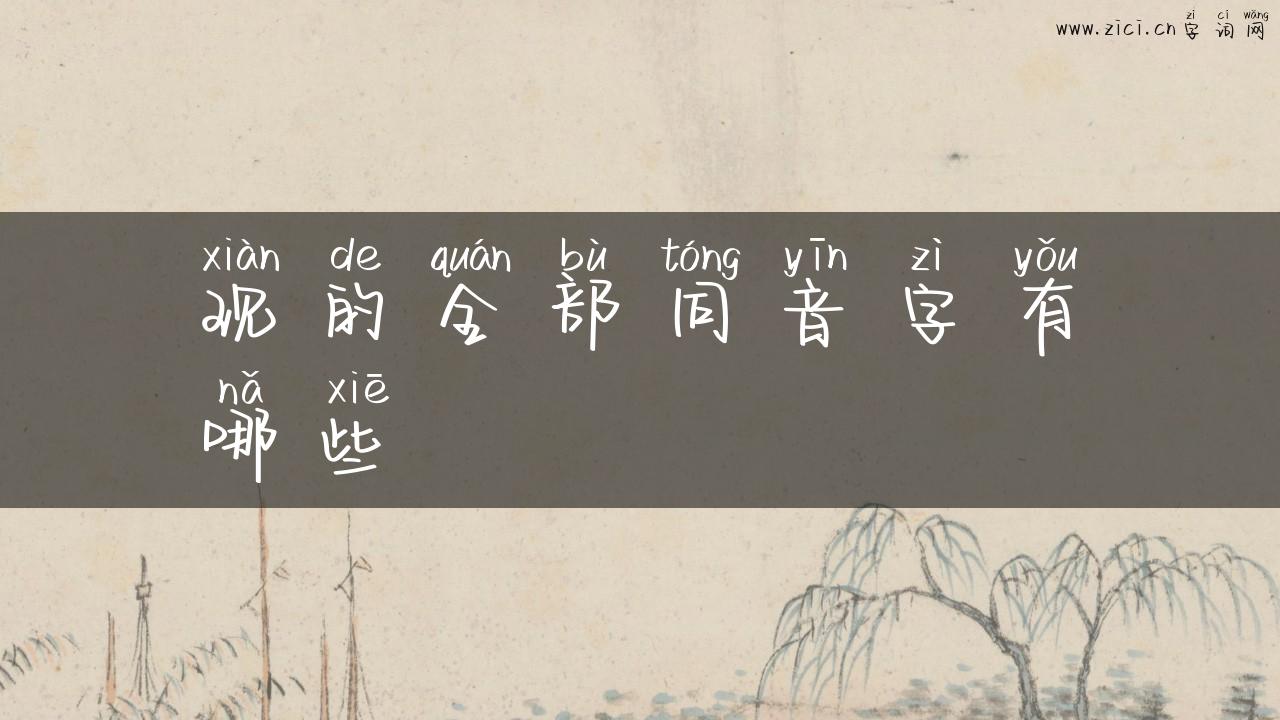 www.zici.cn
zì cí wǎng
字词网
xiàn de quán bù tóng yīn zì yǒu
现的全部同音字有
nǎ xiē
哪些